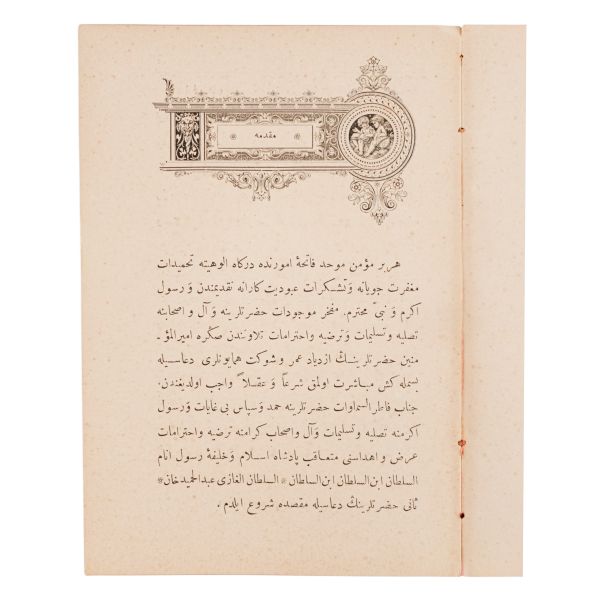 مقدمه
هر بر مؤمن موحد فاتحۀ امورنده درکاه الوهیته تحمیدات
مغفرت جویانه وَ تشکرات عبودیت کارانه تقدیمندن وَ رسول
اکرم وَ نبیّ محترم. مفخر موجودات حضرتلرینه وَ آل و اصحابنه
تصلیه و تسلیمات وَ ترضیه و احترامات تلاوتندن صکره امیرالمؤ ـ
منین حضرتلرینڭ ازدیاد عمر و شوکت همایونلری دعاسیله
بسمله کش مباشرت اولمق شرعاً وَ عقلاً واجب اولدیغندن.
جناب فاطر السماوات حضرتلرینه حمد وَ سپاس بی غایات وَ رسول
اکرمنه تصلیه و تسلیمات وَ آل و اصحاب کرامنه ترضیه و احترامات
عرض و اهداسنی متعاقب پادشاه اسلام وَ خلیفۀ رسول انام
السلطان ابن السلطان ابن السلطان * السلطان الغازی عبدالحمید خان *
ثانی حضرتلرینڭ دعاسیله مقصده شروع ایلدم .